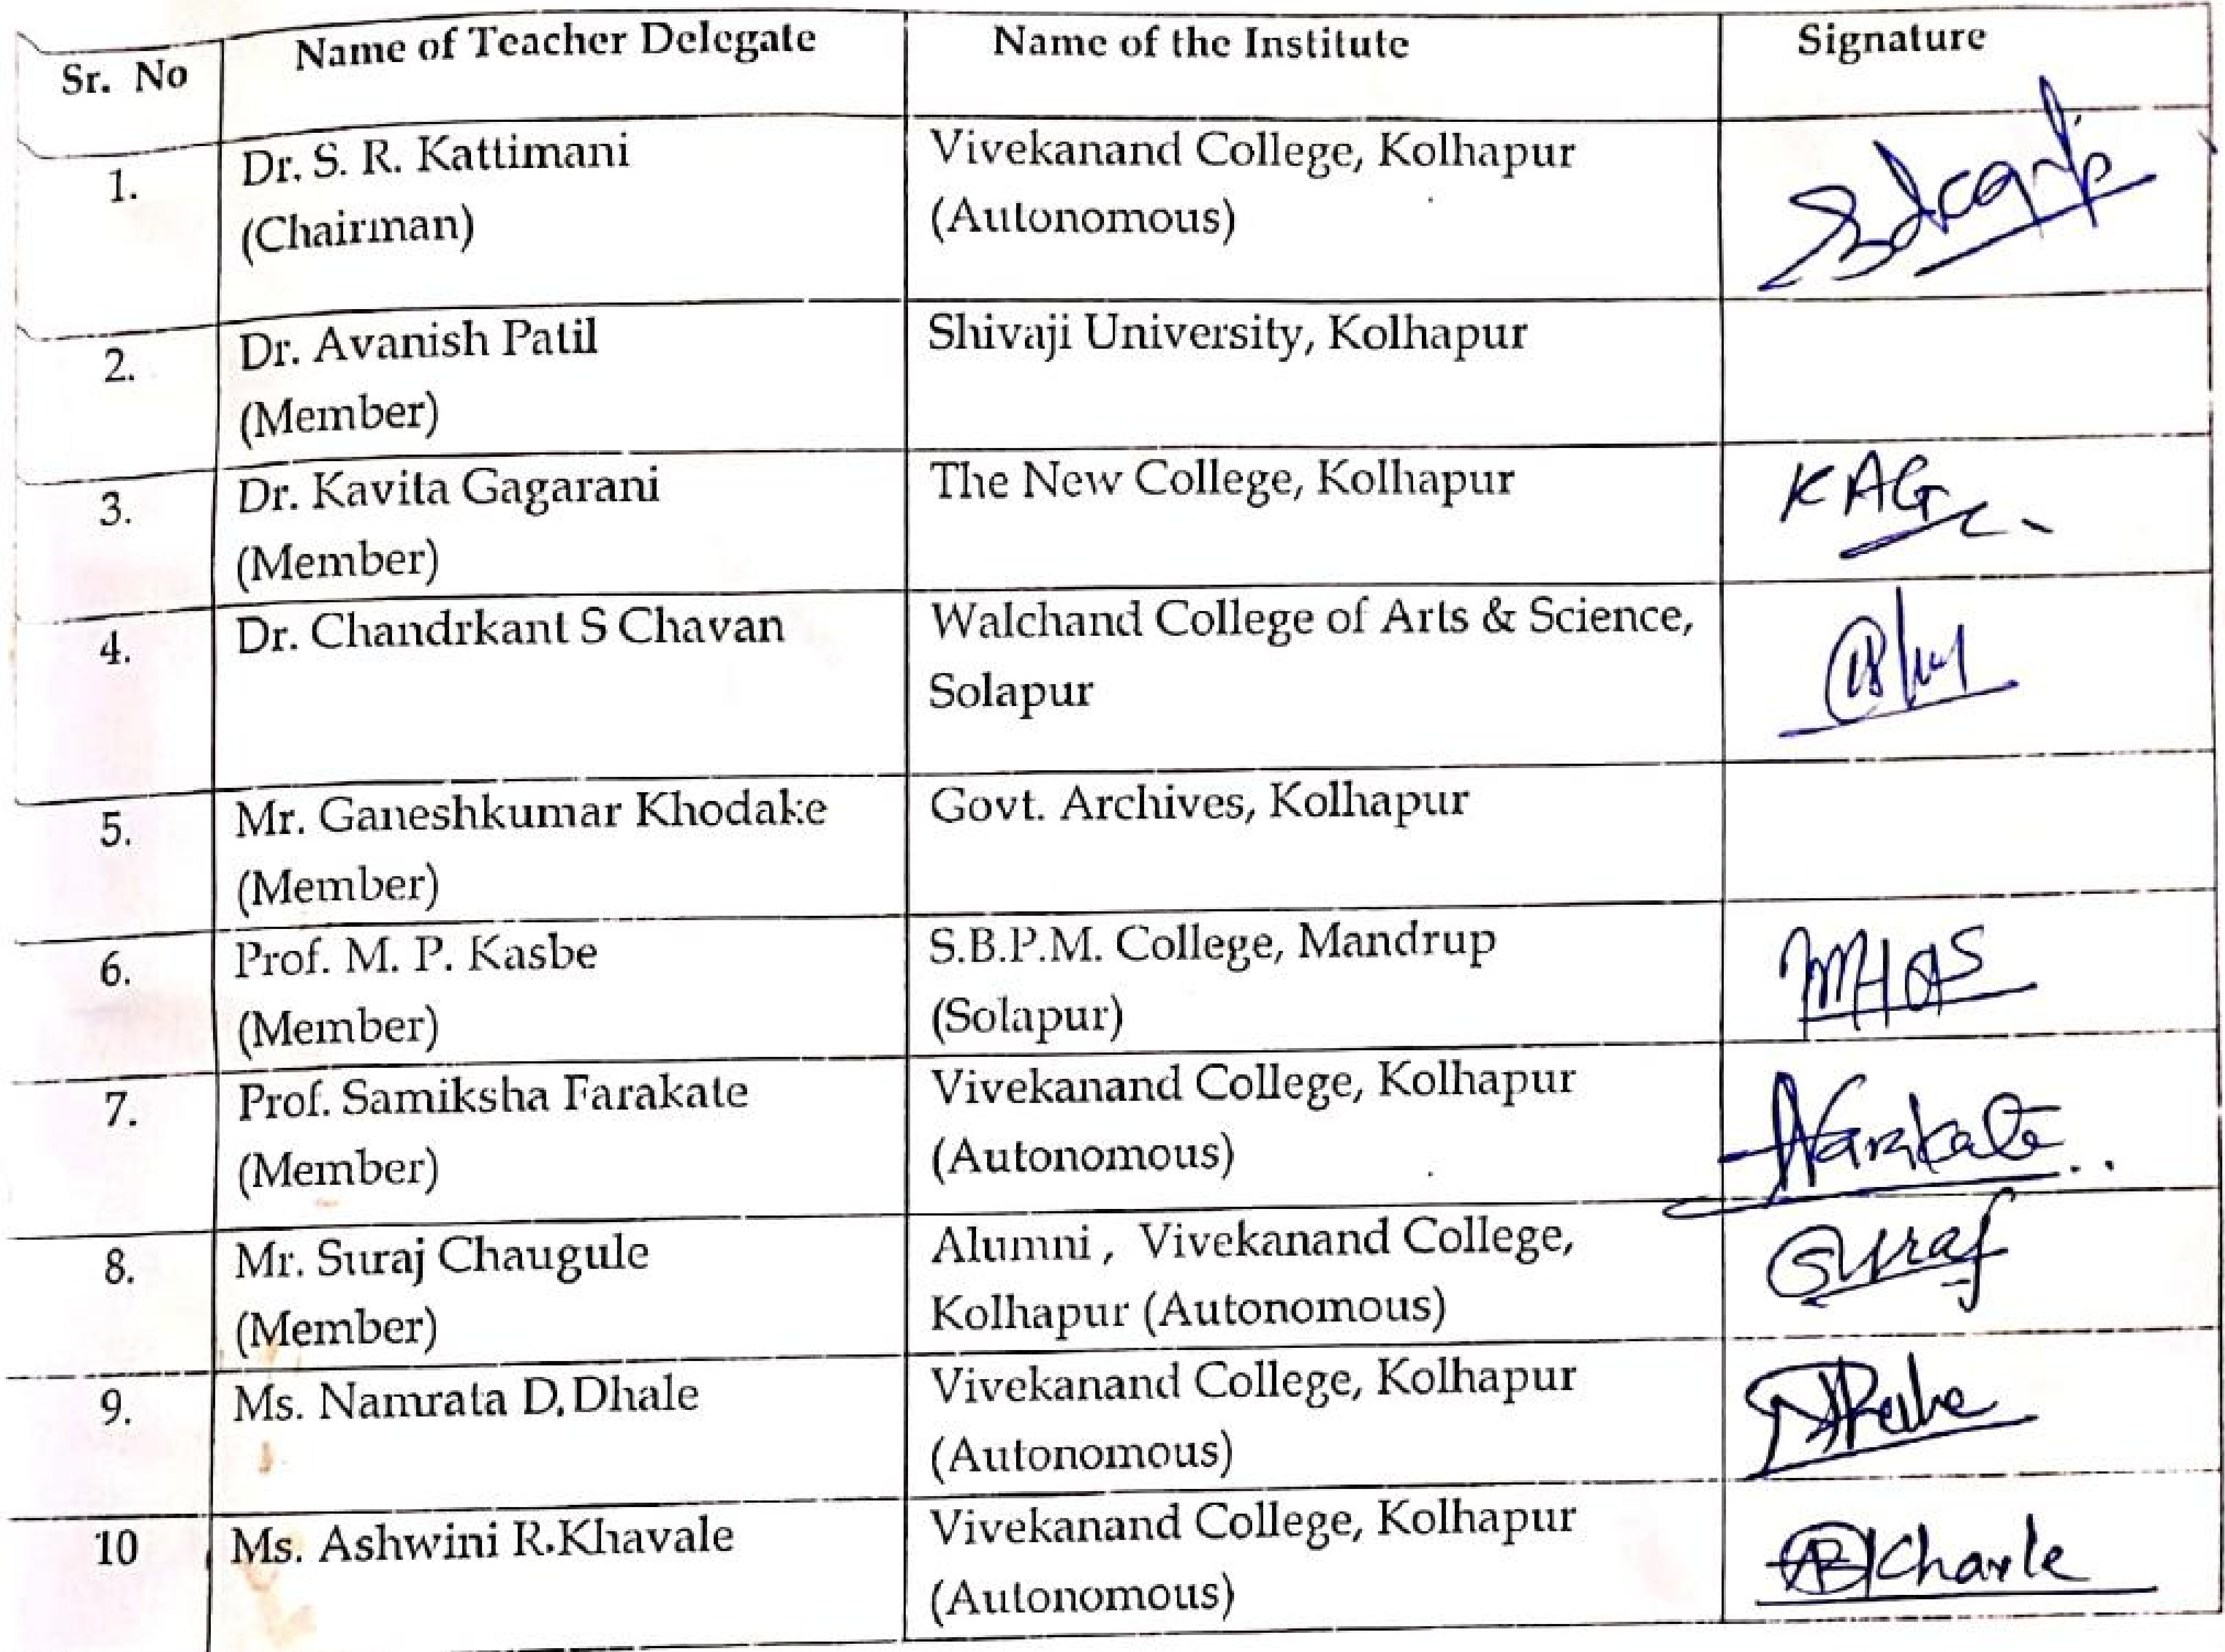 Sr. No Name of Teacher Delegate Name of the Institute Signature
1. Dr. S. R. Kattimani Vivekanand College, Kolhapur
(Chairman) (Autonomous)
2. Dr. Avanish Patil Shivaji University, Kolhapur
(Member)
3. Dr. Kavita Gagarani The New College, Kolhapur KAG
(Member)
4. Dr. Chandrkant S Chavan Walchand College of Arts & Science,
Solapur
5. Mr. Ganeshkumar Khodake Govt. Archives, Kolhapur
(Member)
6. Prof. M. P. Kasbe S.B.P.M. College, Mandrup
(Member) (Solapur)
7. Prof. Samiksha Farakate Vivekanand College, Kolhapur
(Member) (Autonomous)
8. Mr. Suraj Chaugule Alumni , Vivekanand College, Suraj
(Member) Kolhapur (Autonomous)
9. Ms. Namrata D. Dhale Vivekanand College, Kolhapur
(Autonomous)
10 Ms. Ashwini R.Khavale Vivekanand College, Kolhapur
(Autonomous)